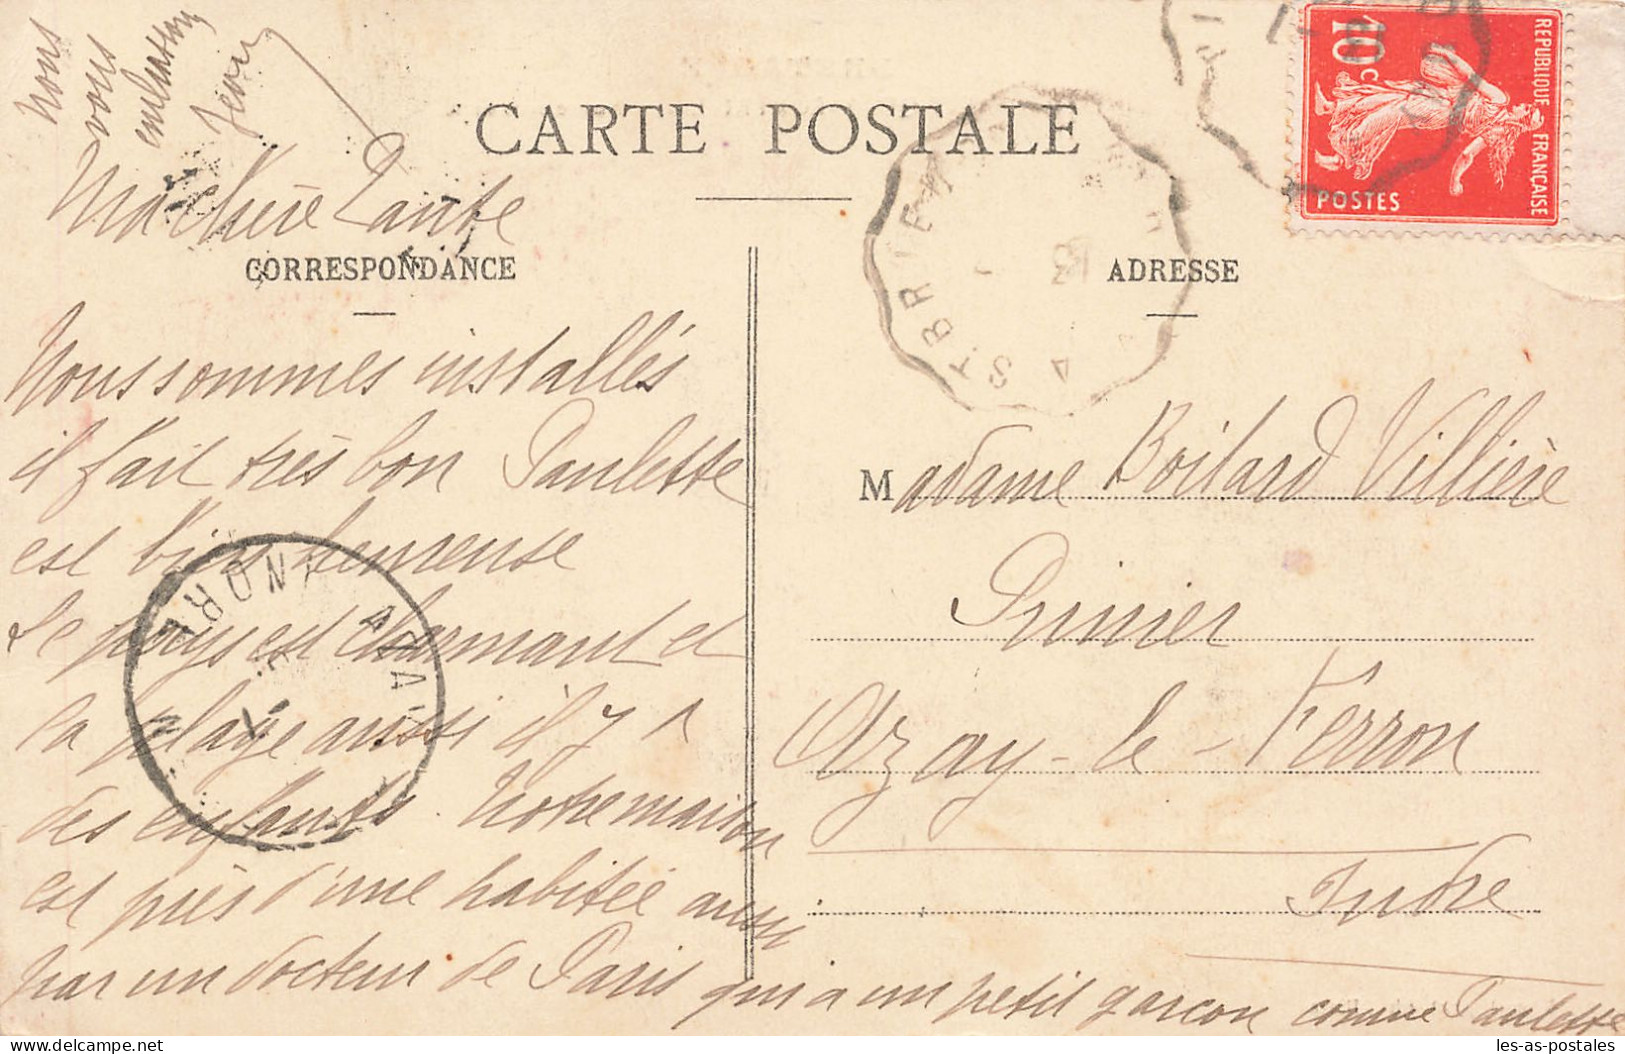 Nous
vous
embrassons
Jean
CARTE POSTALE
Ma chère Tante
CORRESPONDANCE
Nous sommes installés
il fait très bon Paulette
est bien heureuse
Le pays est charmant et
la plage aussi il y a
des enfants. Notre maison
est près d'une habitée aussi
par un docteur de Paris qui a un petit garçon comme Paulette
10c
REPUBLIQUE FRANCAISE
POSTES
ST. BRIEUC
13
ADRESSE
Madame Boilard Villière
Prunier
Azay-le-Ferron
Indre
© les-as-postales
les-as-postales.com